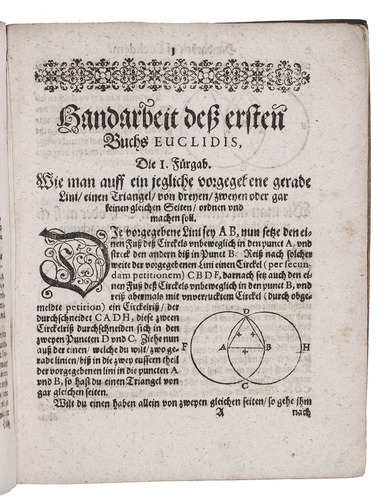 1
Handarbeit deß ersten
Buchs EUCLIDIS,
Die I. Fürgab.
Wie man auff ein jegliche vorgegebene gerade
Lini / einen Triangel / von dreyen / zweyen oder gar
keinen gleichen Seiten / ordnen und
machen soll.
DJe vorgegebene Lini sey A B, nun setze den ei-
nen Fuß deß Circkels unbeweglich in den punct A, und
streck den andern biß in Punct B. Reiß nach solcher
weite der vorgegebenen Lini einen Circkel (per secun-
dam petitionem) C B D F, darnach setz auch den ei-
nen Fuß deß Circkels unbeweglich in den punct B, und
reiß abermals mit unverrucktem Circkel (durch obge-
meldte petition) ein Circkelriß / der
durchschneidet C A D H, diese zween
Circkelriß durchschneiden sich in den
zweyen Puncten D und C. Ziehe nun
auß der einen / welche du wilt / zwo ge-
rade linien / biß in die zwey eussern theil
der vorgegebenen lini in die puncten A
und B, so hast du einen Triangel von
gar gleichen seiten.
D
F A B H
C
Wilt du einen haben allein von zweyen gleichen seiten / so gehe ihm
A nach